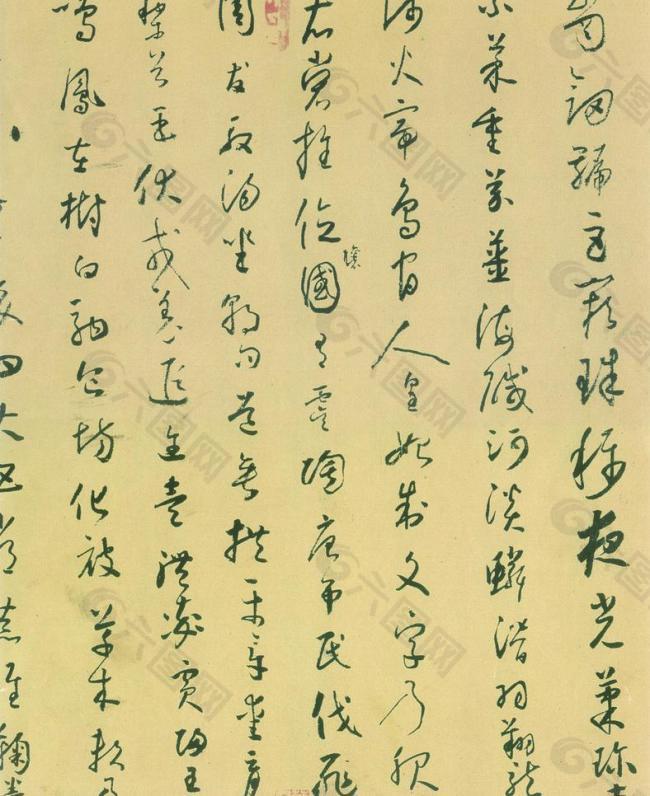 崗劍號巨闕珠稱夜光菓珍李
柰菜重芥薑海鹹河淡鱗潛羽翔龍
師火帝鳥官人皇始制文字乃服
衣裳推位讓國有虞陶唐弔民伐罪
周發殷湯坐朝問道垂拱平章愛育
黎首臣伏戎羌遐邇壹體率賓歸王
鳴鳳在樹白駒食場化被草木賴及
髮四大五常恭惟鞠養
六图网